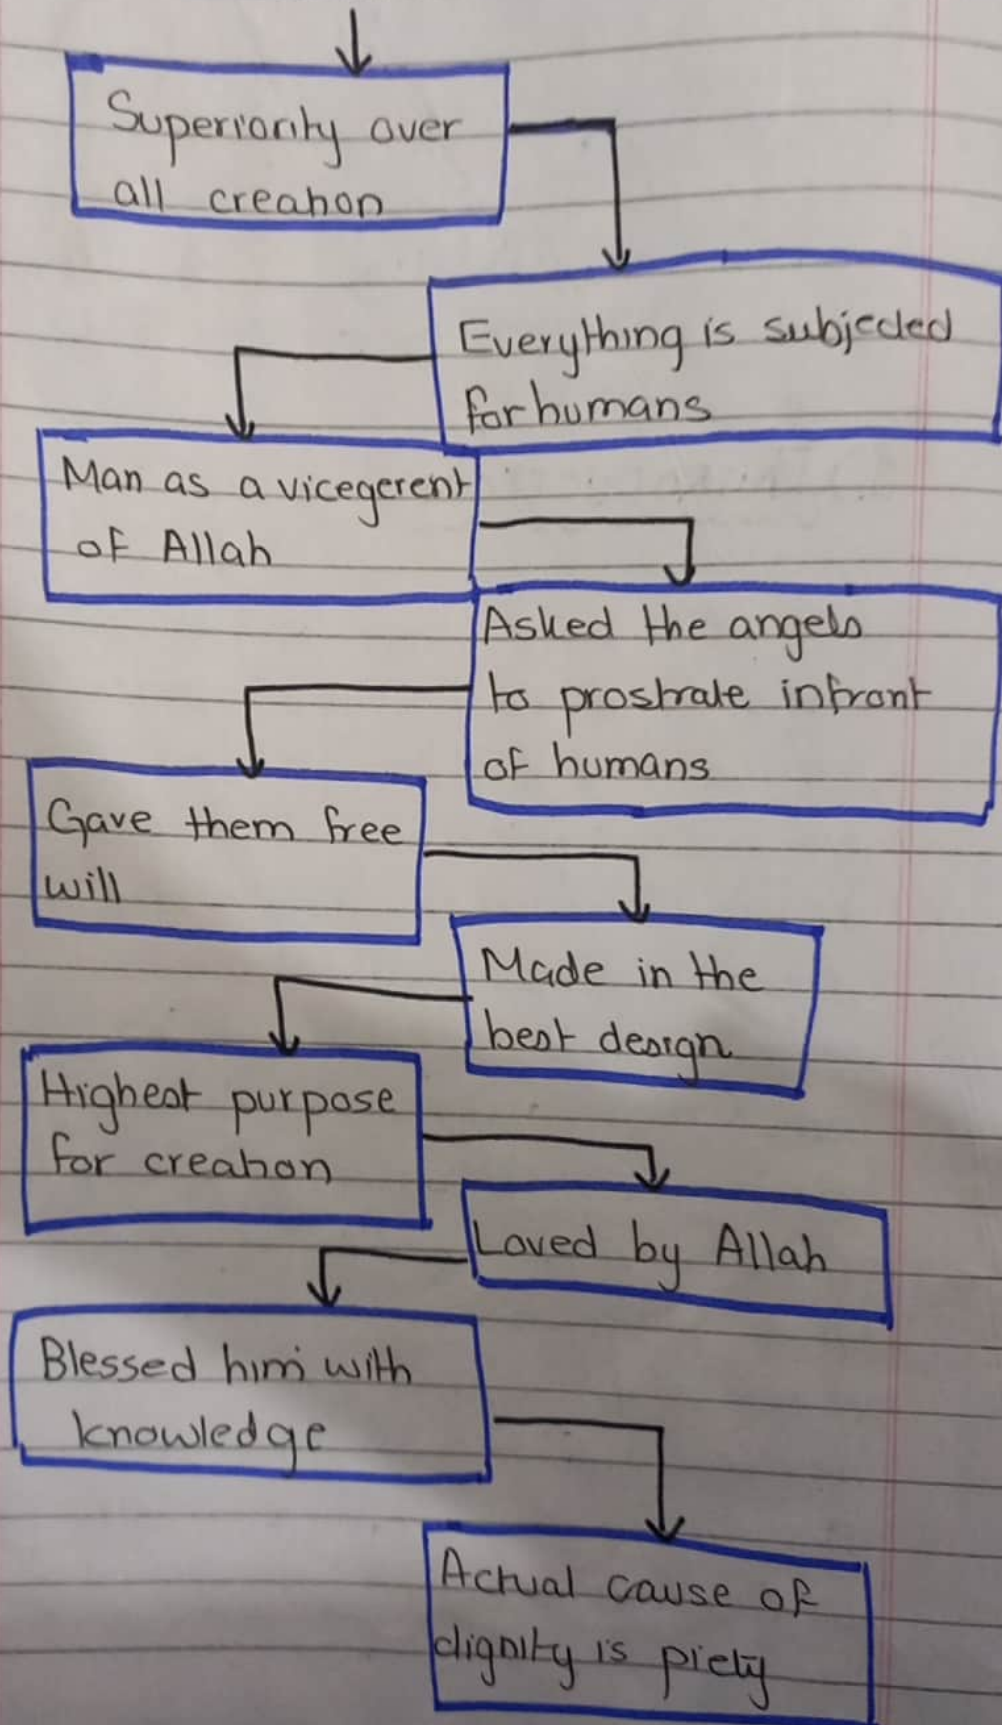 Superiority over
all creation
Everything is subjected
for humans
Man as a vicegerent
of Allah
Asked the angels
to prostrate infront
of humans
Gave them free
will
Made in the
best design
Highest purpose
for creation
Loved by Allah
Blessed him with
knowledge
Actual cause of
dignity is piety